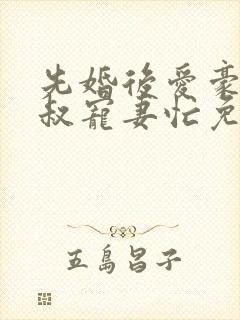 先婚後愛豪
叔寵妻忙免
五島昌子